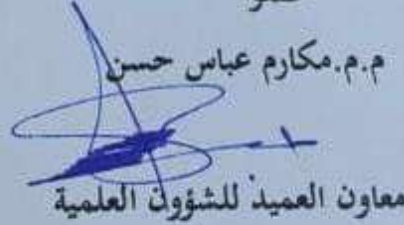 م.م.مكارم عباس حسن
معاون العميد للشؤون العلمية